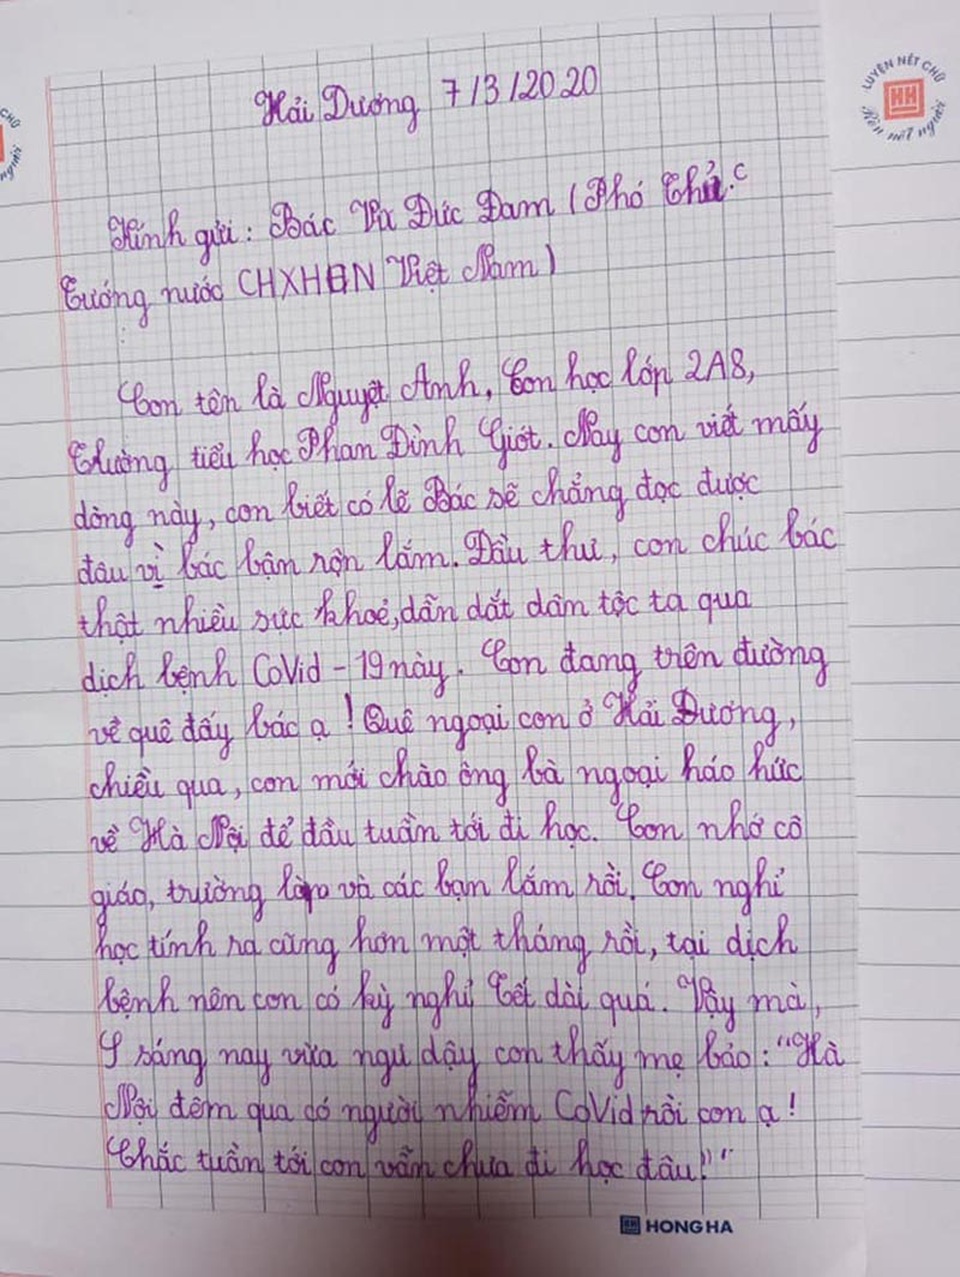 Hải Dương 7/3/2020
LUYỆN NÉT CHỮ
HH
Rèn nết người
CHỮ
người
Kính gửi: Bác Vũ Đức Đam (Phó Thủ.c
Tướng nước CHXHCN Việt Nam)
Con tên là Nguyệt Anh, Con học lớp 2A8,
Trường tiểu học Phan Đình Giót. Nay con viết mấy
dòng này, con biết có lẽ Bác sẽ chẳng đọc được
đâu vì bác bận rộn lắm. Đầu thư, con chúc bác
thật nhiều sức khoẻ, dẫn dắt dân tộc ta qua
dịch bệnh CoVid - 19 này. Con đang trên đường
về quê đấy bác ạ! Quê ngoại con ở Hải Dương,
chiều qua, con mới chào ông bà ngoại háo hức
về Hà Nội để đầu tuần tới đi học. Con nhớ cô
giáo, trường lớp và các bạn lắm rồi. Con nghỉ
học tính ra cũng hơn một tháng rồi, tại dịch
bệnh nên con có kỳ nghỉ Tết dài quá. Vậy mà,
sáng nay vừa ngủ dậy con thấy mẹ bảo: "Hà
Nội đêm qua có người nhiễm CoVid rồi con ạ!
Chắc tuần tới con vẫn chưa đi học đâu!"
HH HONG HA